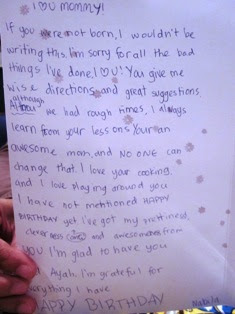 I ♡ U MOMMY!
If you were not born, I wouldn't be
writing this. I'm sorry for all the bad
things I've done. I ♡ U! You give me
wise directions and great suggestions.
although
we had rough times, I always
learn from your lessons. Your an
awesome mom, and NO ONE can
change that. I love your cooking,
and I love playing around you
I have not mentioned HAPPY
BIRTHDAY yet. I've got my prettiness,
cleverness and awesomeness from
YOU. I'm glad to have you
Ayah. I'm grateful for
everything I have
HAPPY BIRTHDAY